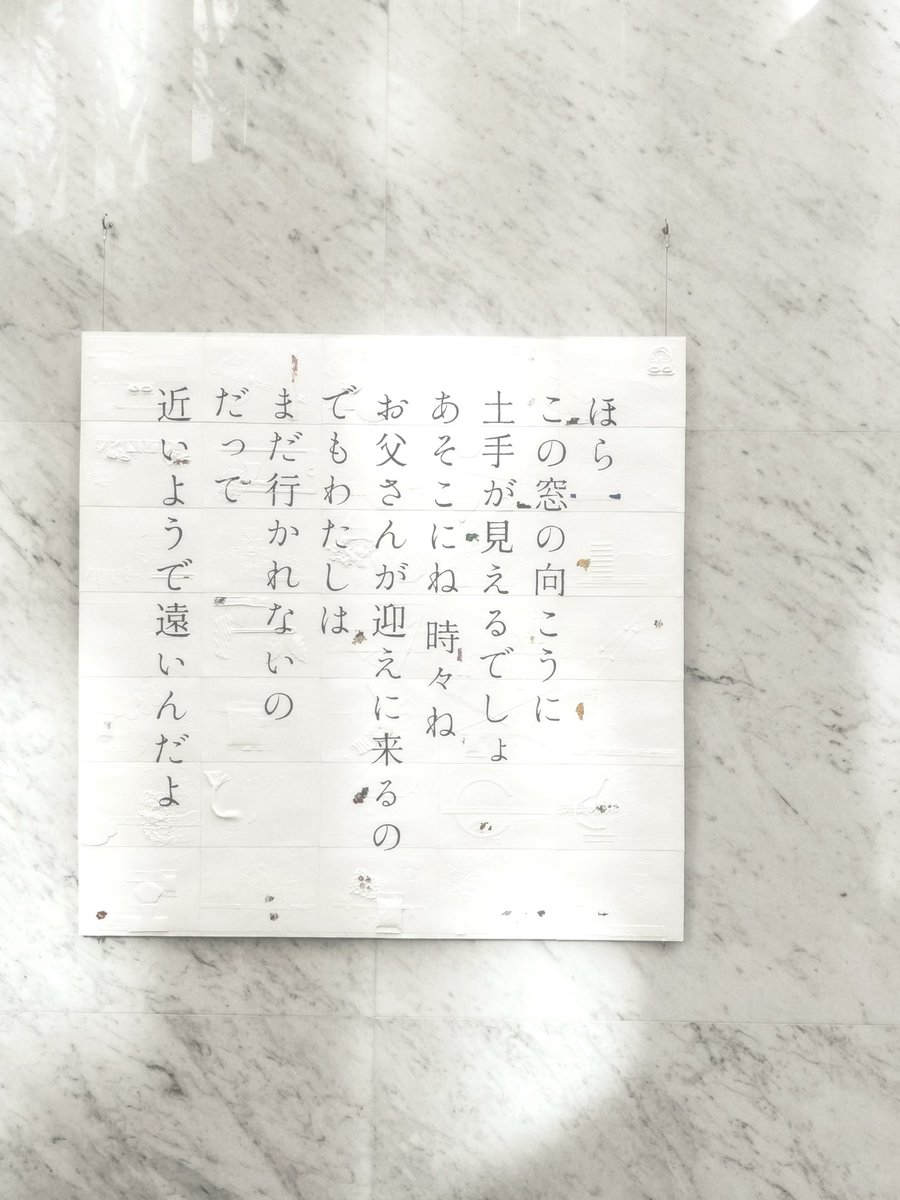 ほら
この窓の向こうに
土手が見えるでしょ
あそこにね 時々ね
お父さんが迎えに来るの
でもわたしは
まだ行かれないの
だって
近いようで遠いんだよ